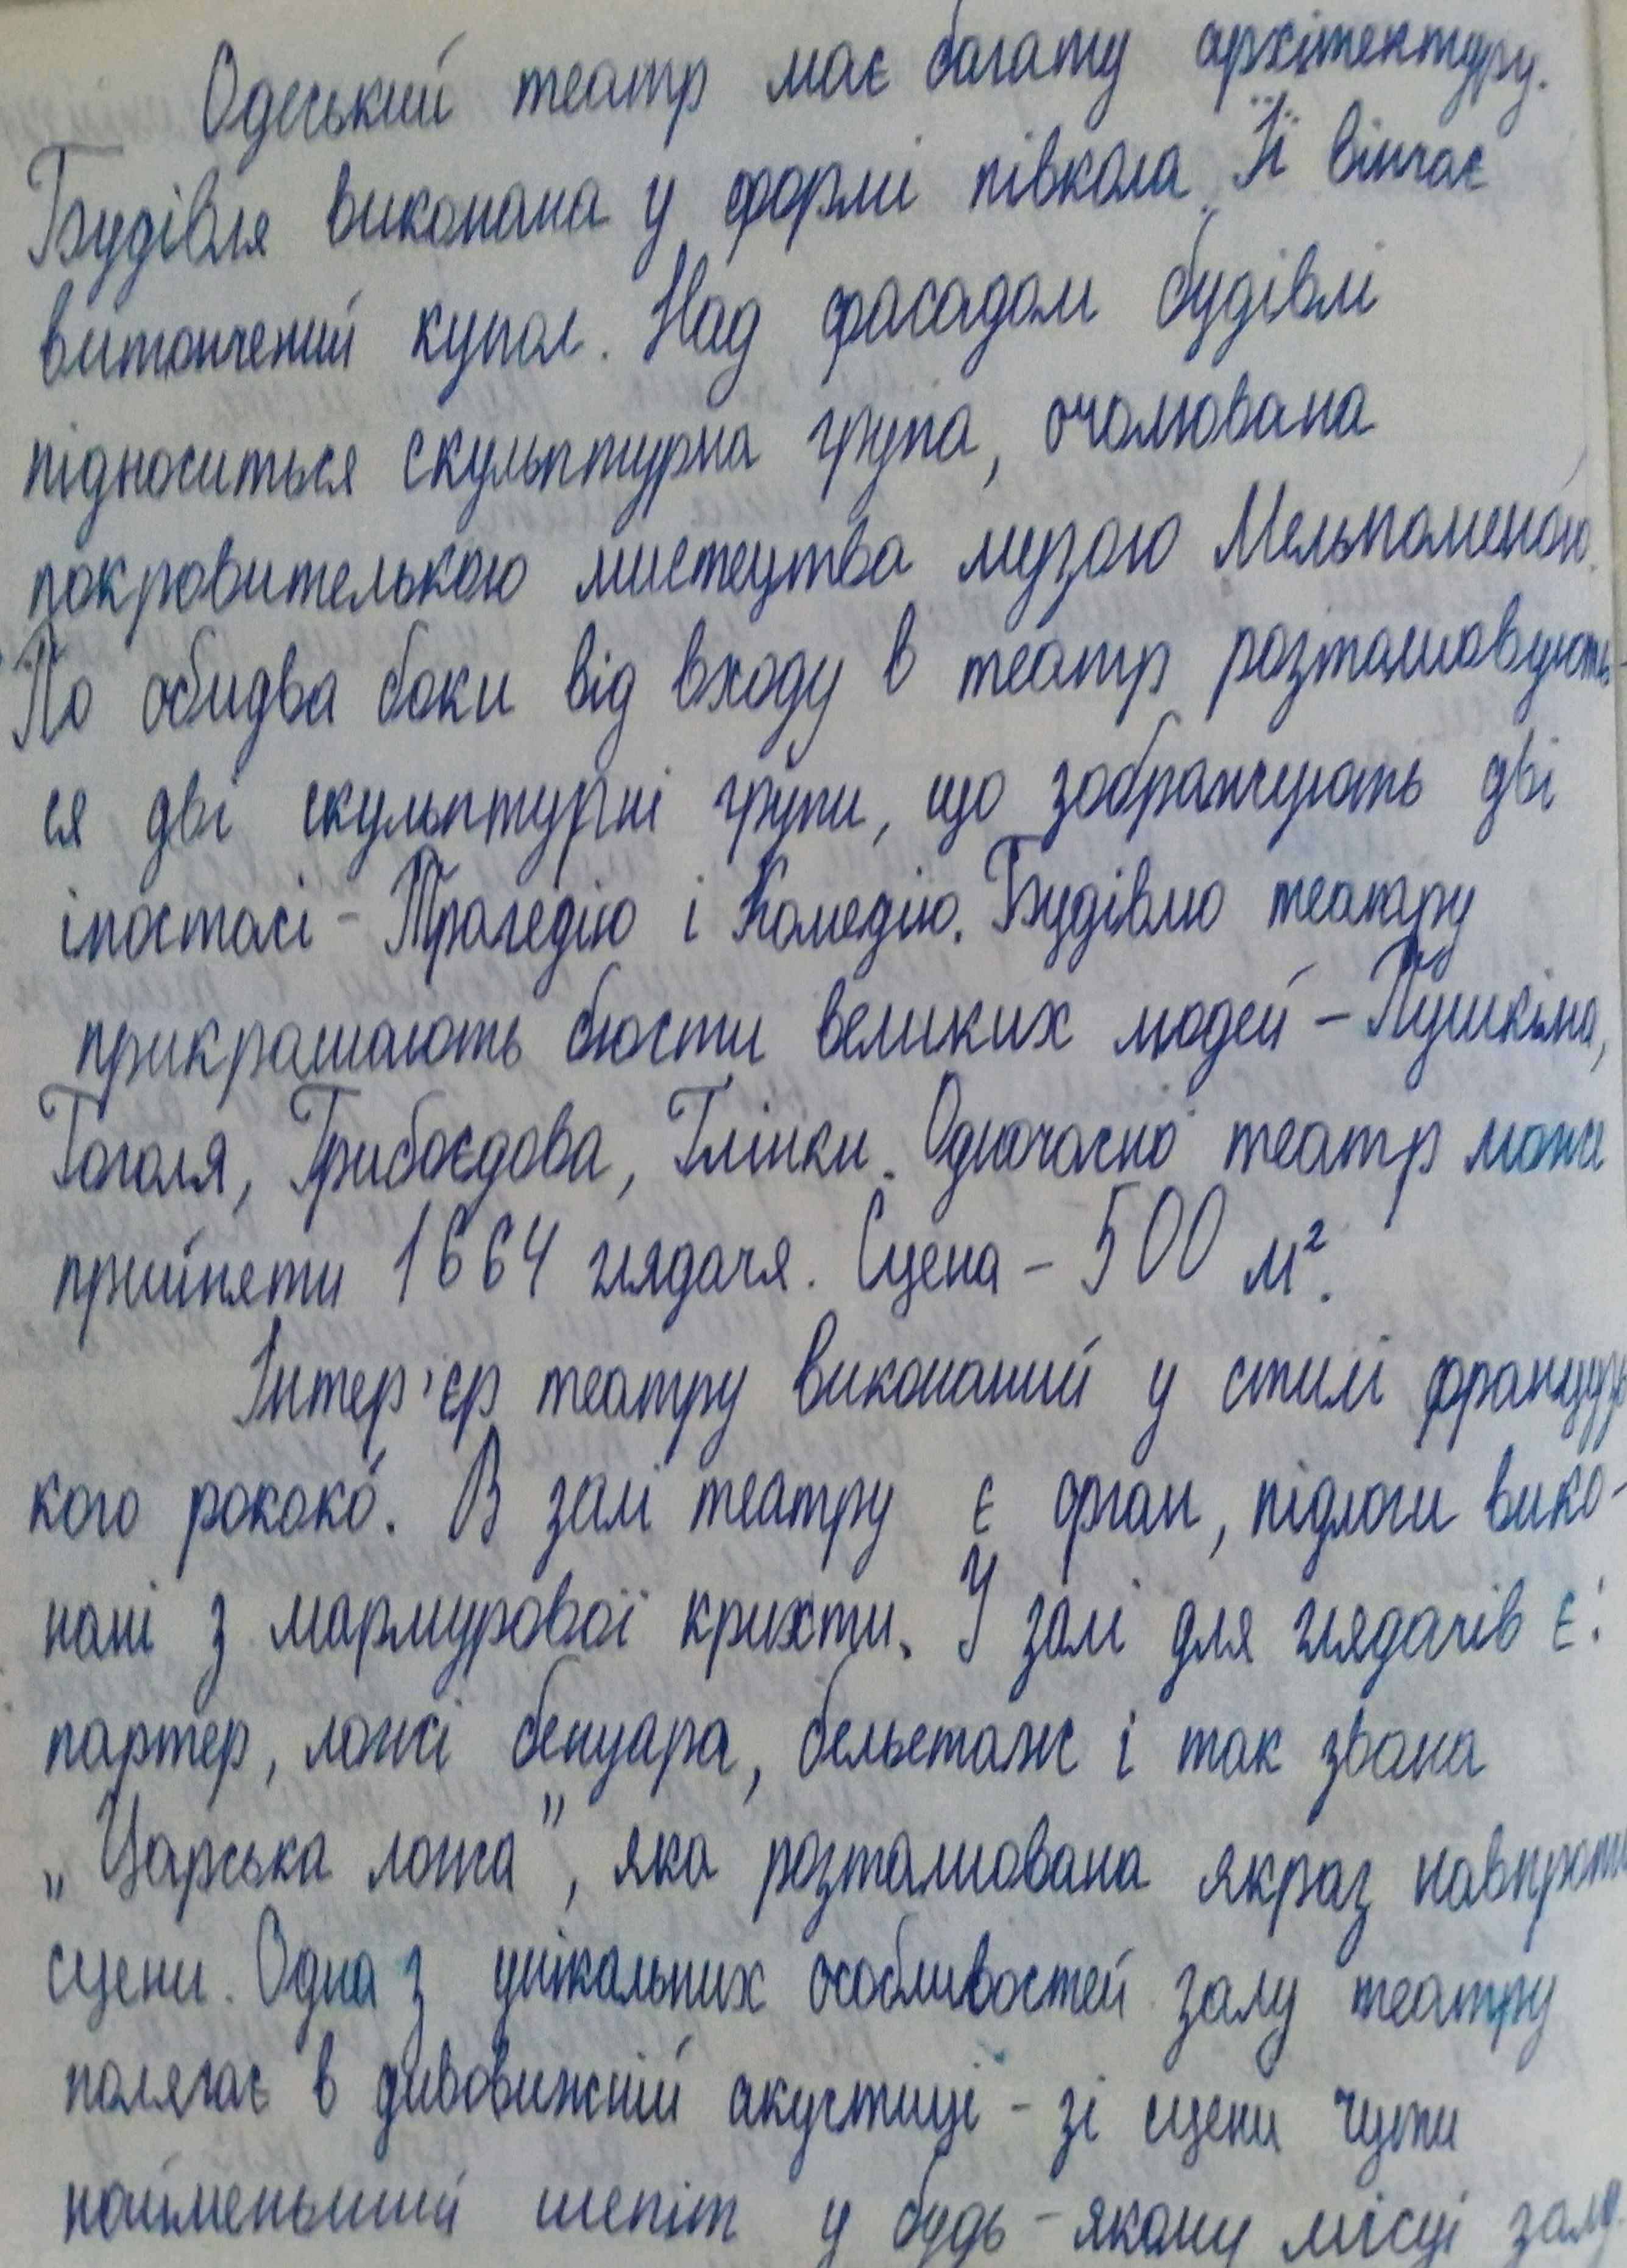 Одеський театр має багату архітектуру.
Будівля виконана у формі півкола. Її вінчає
витончений купол. Над фасадом будівлі
підноситься скульптурна група, очолювана
покровителькою мистецтва музою Мельпоменою.
По обидва боки від входу в театр розташовують-
ся дві скульптурні групи, що зображують дві
іпостасі - Трагедію і Комедію. Будівлю театру
прикрашають бюсти великих людей - Пушкіна,
Гоголя, Грибоєдова, Глінки. Одночасно театр може
прийняти 1664 глядача. Сцена - 500 м².
Інтер'єр театру виконаний у стилі французь
кого рококо. В залі театру є орган, підлоги вико-
нані з мармурової крихти. У залі для глядачів є:
партер, ложі бенуара, бельетаж і так звана
„Царська ложа", яка розташована якраз навпроти
сцени. Одна з унікальних особливостей залу театру
полягає в дивовижній акустиці - зі сцени чути
найменьший шепіт у будь-якому місці залу.